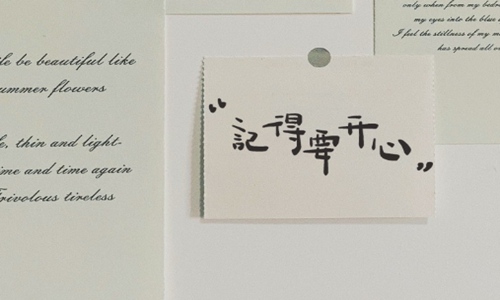 be beautiful like
ummer flowers
thin and light-
me and time again
rivolous tireless
“記得要开心”
only when from my bedr
my eyes into the blue
I feel the stillness of my m
has spread all o